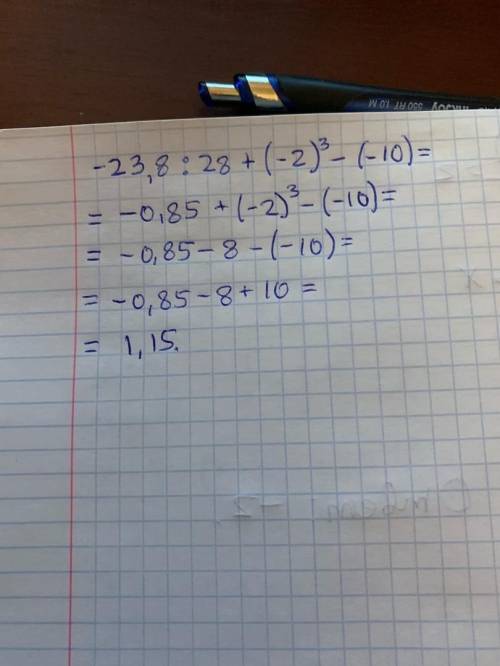 InJoy 550 RT 1.0 M
-23,8 : 28 + (-2)³ - (-10) =
= -0,85 + (-2)³ - (-10) =
= -0,85 - 8 - (-10) =
= -0,85 - 8 + 10 =
= 1,15.